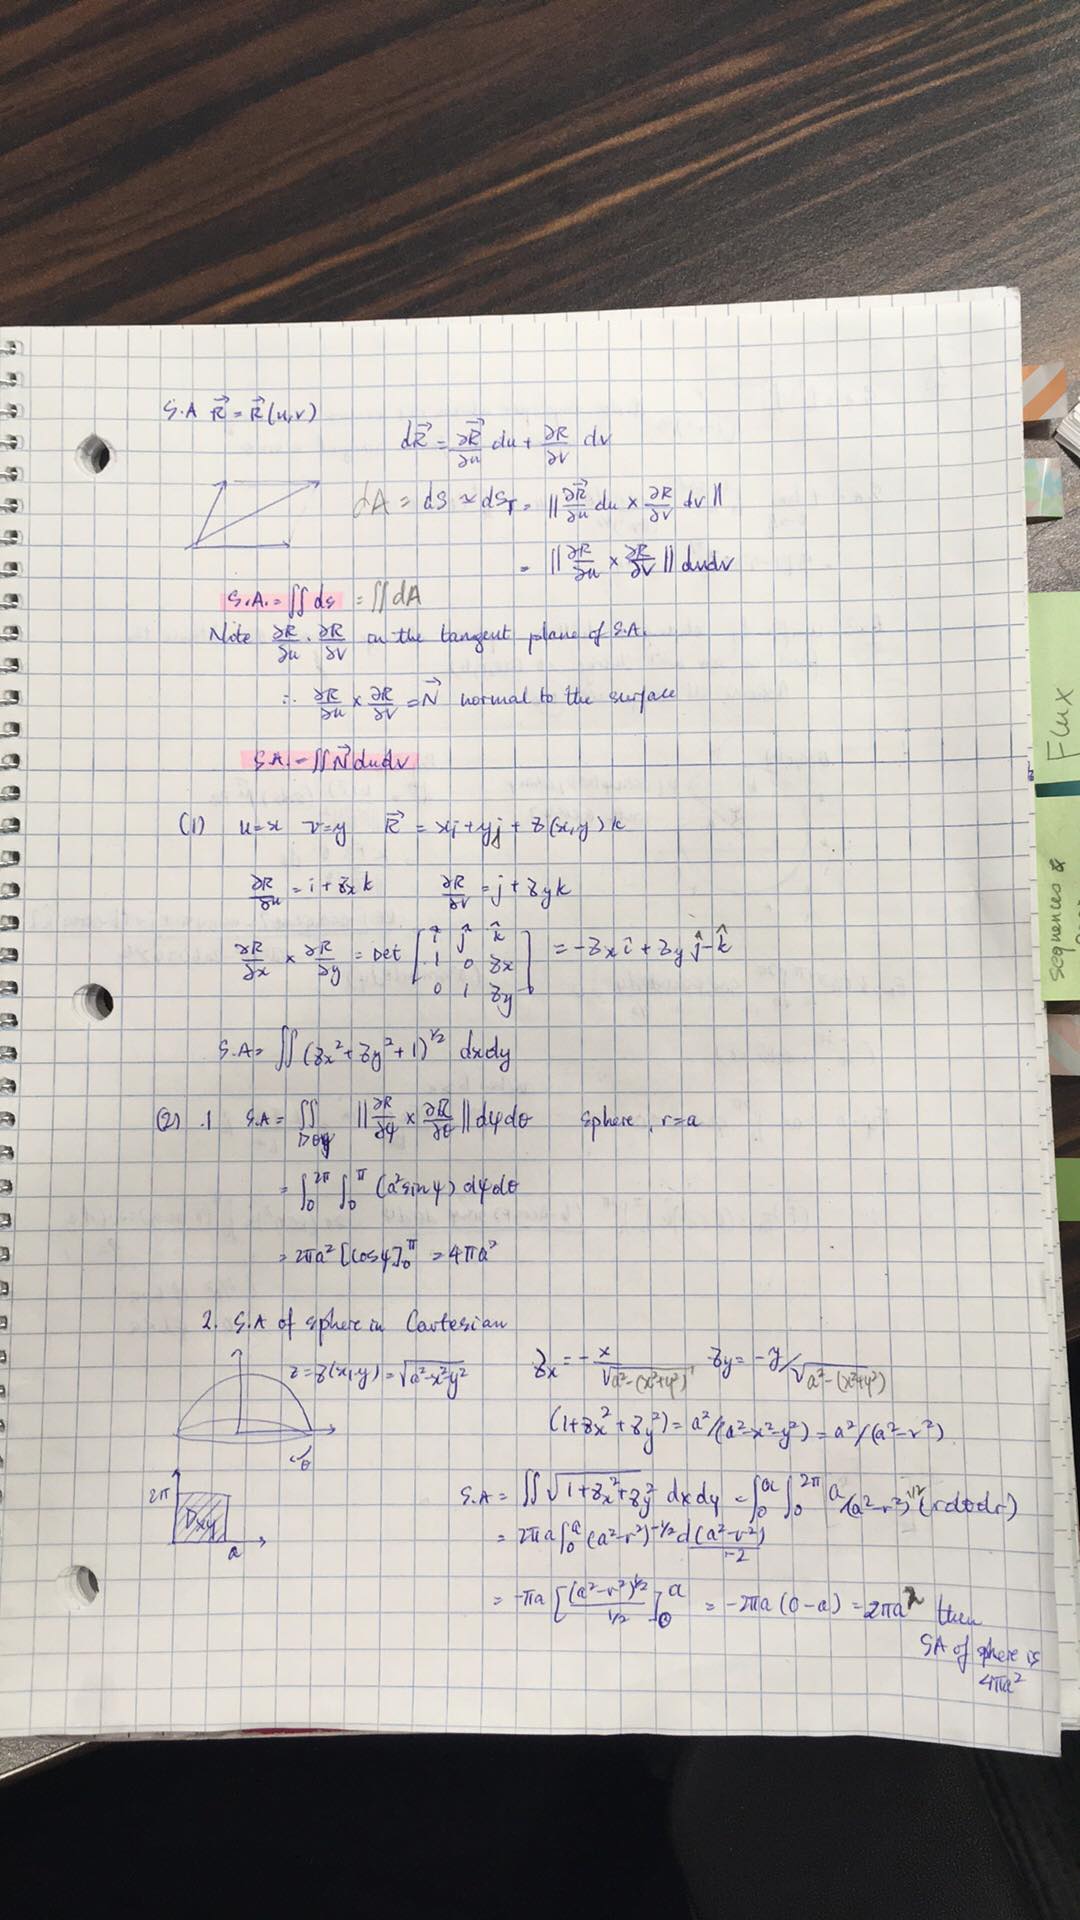 S.A R⃗ = R⃗(u,v)
dR⃗ = ∂R⃗/∂u du + ∂R/∂v dv
dA = dS ≈ dS_T = ||∂R⃗/∂u du × ∂R/∂v dv||
= ||∂R/∂u × ∂R/∂v|| dudv
S.A. = ∬ds = ∬dA
Note ∂R/∂u, ∂R/∂v on the tangent plane of S.A.
∴ ∂R/∂u × ∂R/∂v = N⃗ normal to the surface
S.A. = ∬N⃗ dudv
(1) u=x v=y R⃗ = xi + yj + z(x,y) k
∂R/∂u = i + zx k ∂R/∂v = j + zy k
∂R/∂x × ∂R/∂y = Det [î ĵ k̂
1 0 zx
0 1 zy] = -zx î + zy ĵ - k̂
S.A = ∬(zx² + zy² + 1)^1/2 dxdy
(2) .1 S.A = ∬ ||∂R/∂φ × ∂R/∂θ|| dφdθ Sphere, r=a
= ∫₀^2π ∫₀^π (a² sinφ) dφdθ
= 2πa² [cosφ]₀^π = 4πa²
2. S.A of sphere in Cartesian
z = z(x,y) = √a²-x²-y² zx = -x/√a²-(x²+y²) zy = -y/√a²-(x²+y²)
θ
(1+zx²+zy²) = a²/(a²-x²-y²) = a²/(a²-r²)
2π
Dxy
a
S.A = ∬√1+zx²+zy² dxdy = ∫₀^a ∫₀^2π a/(a²-r²)^1/2 (rdθdr)
= 2πa ∫₀^a (a²-r²)^-1/2 d(a²-r²)/-2
= -πa [(a²-r²)^1/2 / 1/2]₀^a = -2πa(0-a) = 2πa² then
SA of sphere is
4πa²
Flux
sequences &